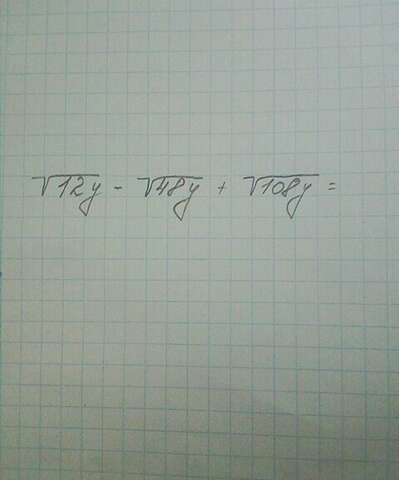 √12y - √48y + √108y =